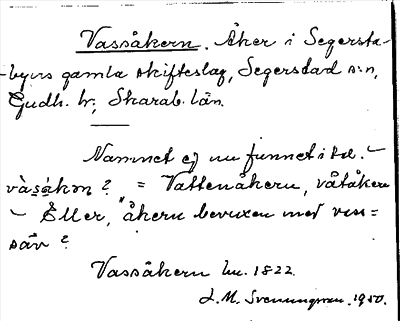 Vassåkern. Åker i Segersta-
byns gamla skifteslag, Segerstad s:n,
Gudh. hr, Skarab. län.
Namnet ej nu funnet i br. –
vàsåkɷn? = Vattenåkern, våtåkern
– Eller, "åkern bevuxen med vass=
säv?
Vassåkern hu. 1822.
L. M. Svenungsson. 1950.